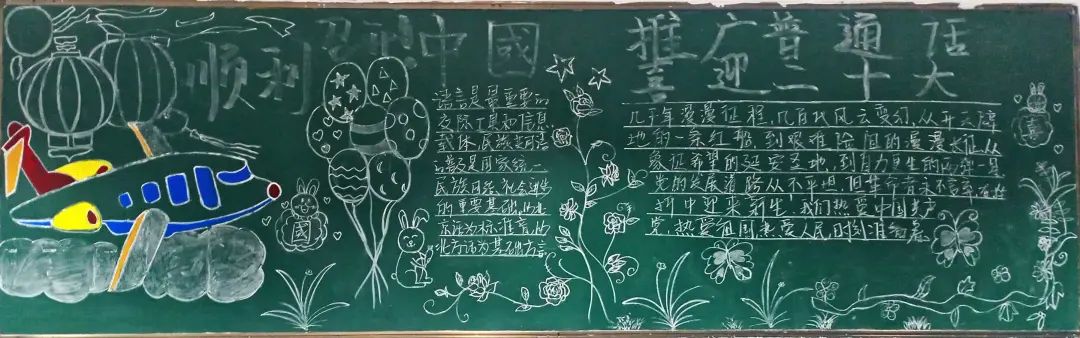 顺利 中國
推广普通话
喜迎二十大
语言是最重要的
交际工具和信息
载体,民族共同语
是国家统一
民族团结,社会进步
的重要基础,以北
京语为标准音,以
北方话为基础方言
几千年漫漫征程,几百代风云变幻,从开天辟
地的一条红船,到艰难险阻的漫漫长征,从
象征希望的延安圣地,到自力更生的
党的发展道路从不平坦,但革命者
折中迎来新生,我们热爱中国共产
党,热爱祖国热爱人民,时刻准备着
國
喜